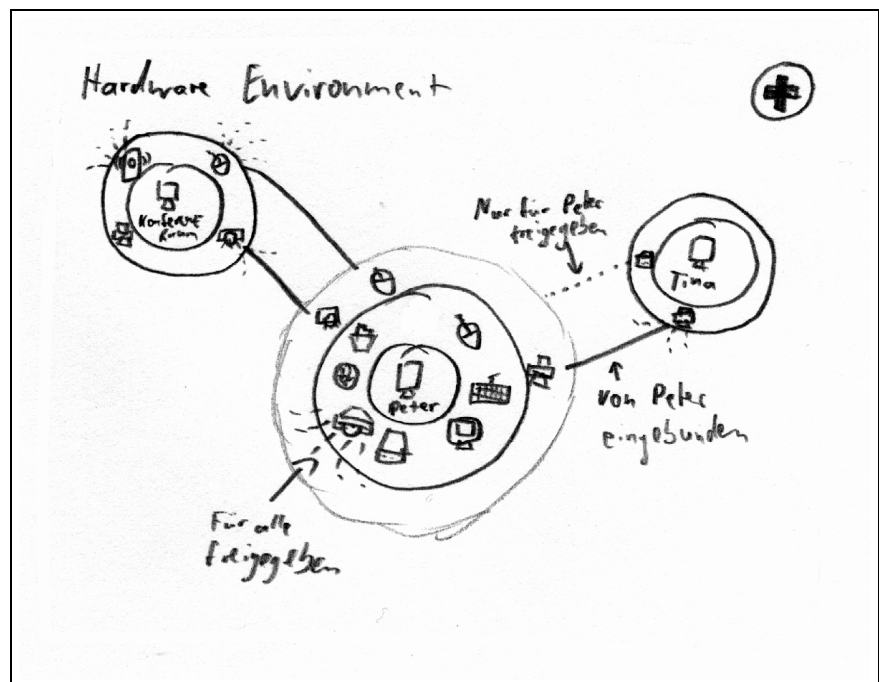 Hardware Environment
Konferenz
Raum
Nur für Peter
freigegeben
Tina
Peter
von Peter
eingebunden
Für alle
freigegeben